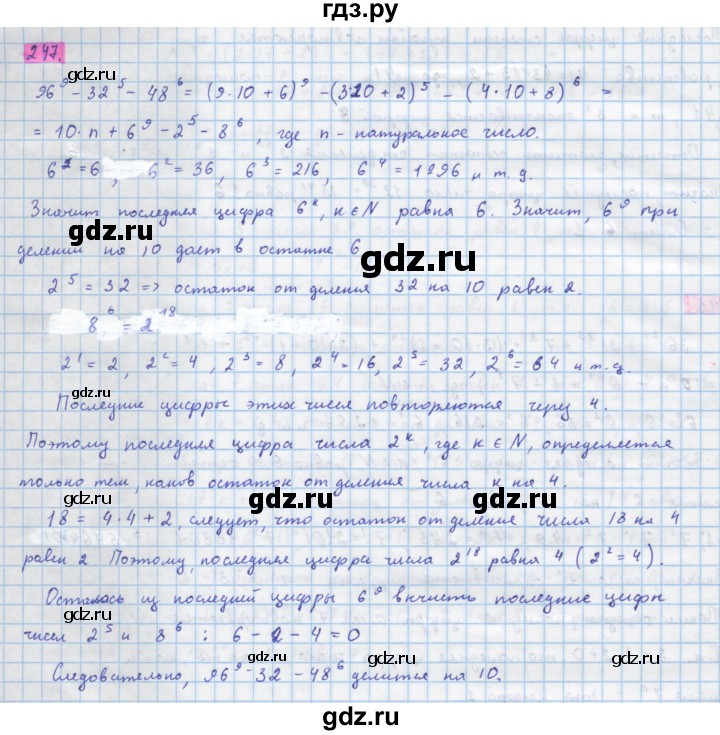 гдз.ру
247.
96⁹ - 32⁵ - 48⁶ = (9·10 + 6)⁹ - (3·10 + 2)⁵ - (4·10 + 8)⁶ =
= 10·n + 6⁹ - 2⁵ - 8⁶, где n - натуральное число.
6¹ = 6, 6² = 36, 6³ = 216, 6⁴ = 1296 и т.д.
Значит последняя цифра 6ᵏ, к ∈ N равна 6. Значит, 6⁹ при
gdz.ru
делении на 10 дает в остатке 6
gdz.ru
2⁵ = 32 => остаток от деления 32 на 10 равен 2.
8⁶ = 2¹⁸
gdz.ru
2¹ = 2, 2² = 4, 2³ = 8, 2⁴ = 16, 2⁵ = 32, 2⁶ = 64 и т.д.
Последние цифры этих чисел повторяются через 4.
gdz.ru
Поэтому последняя цифра числа 2ᵏ, где к ∈ N, определяется
только тем, каков остаток от деления числа к на 4.
gdz.ru
gdz.ru
18 = 4·4 + 2, следует, что остаток от деления числа 18 на 4
равен 2. Поэтому, последняя цифра числа 2¹⁸ равна 4 (2² = 4).
gdz.ru
Осталось из последней цифры 6⁹ вычисть последние цифры
чисел 2⁵ и 8⁶ : 6 - 2 - 4 = 0
gdz.ru
Следовательно, 96⁹ - 32 - 48⁶ делится на 10.
gdz.ru
gdz.ru